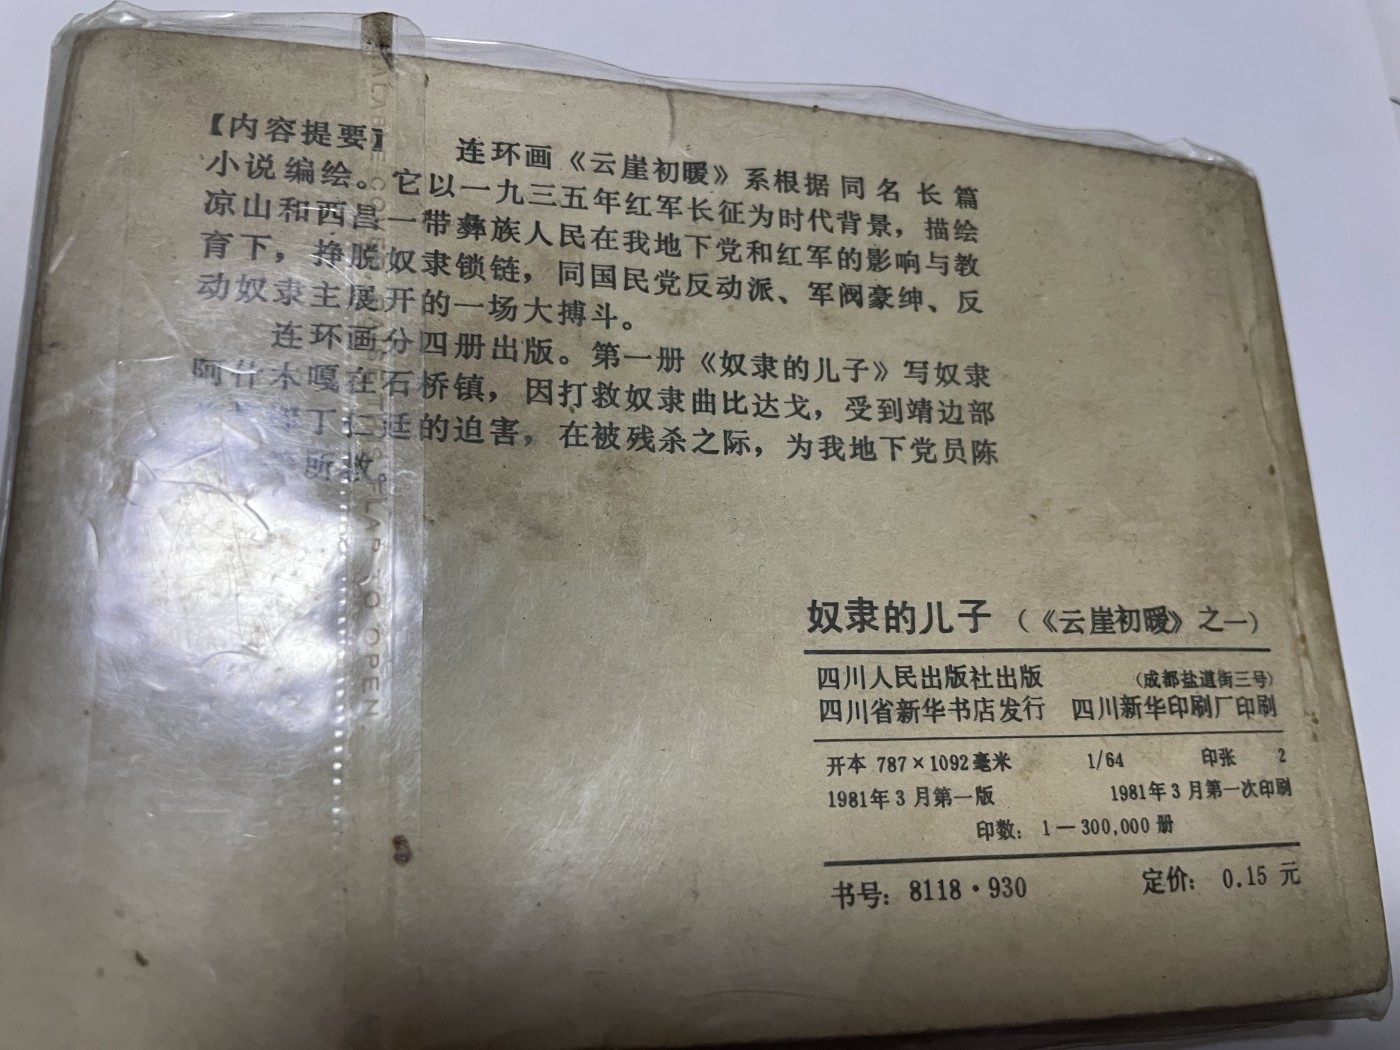 【内容提要】 连环画《云崖初暖》系根据同名长篇
小说编绘。它以一九三五年红军长征为时代背景，描绘
凉山和西昌一带彝族人民在我地下党和红军的影响与教
育下，挣脱奴隶锁链，同国民党反动派、军阀豪绅、反
动奴隶主展开的一场大搏斗。
连环画分四册出版。第一册《奴隶的儿子》写奴隶
阿什木嘎在石桥镇，因打救奴隶曲比达戈，受到靖边部
丁仁廷的迫害，在被残杀之际，为我地下党员陈
所救。
FLAP TO OPEN
奴隶的儿子（《云崖初暖》之一）
四川人民出版社出版 （成都盐道街三号）
四川省新华书店发行 四川新华印刷厂印刷
开本 787×1092毫米 1/64 印张 2
1981年3月第一版 1981年3月第一次印刷
印数：1—300,000册
书号：8118·930 定价：0.15元